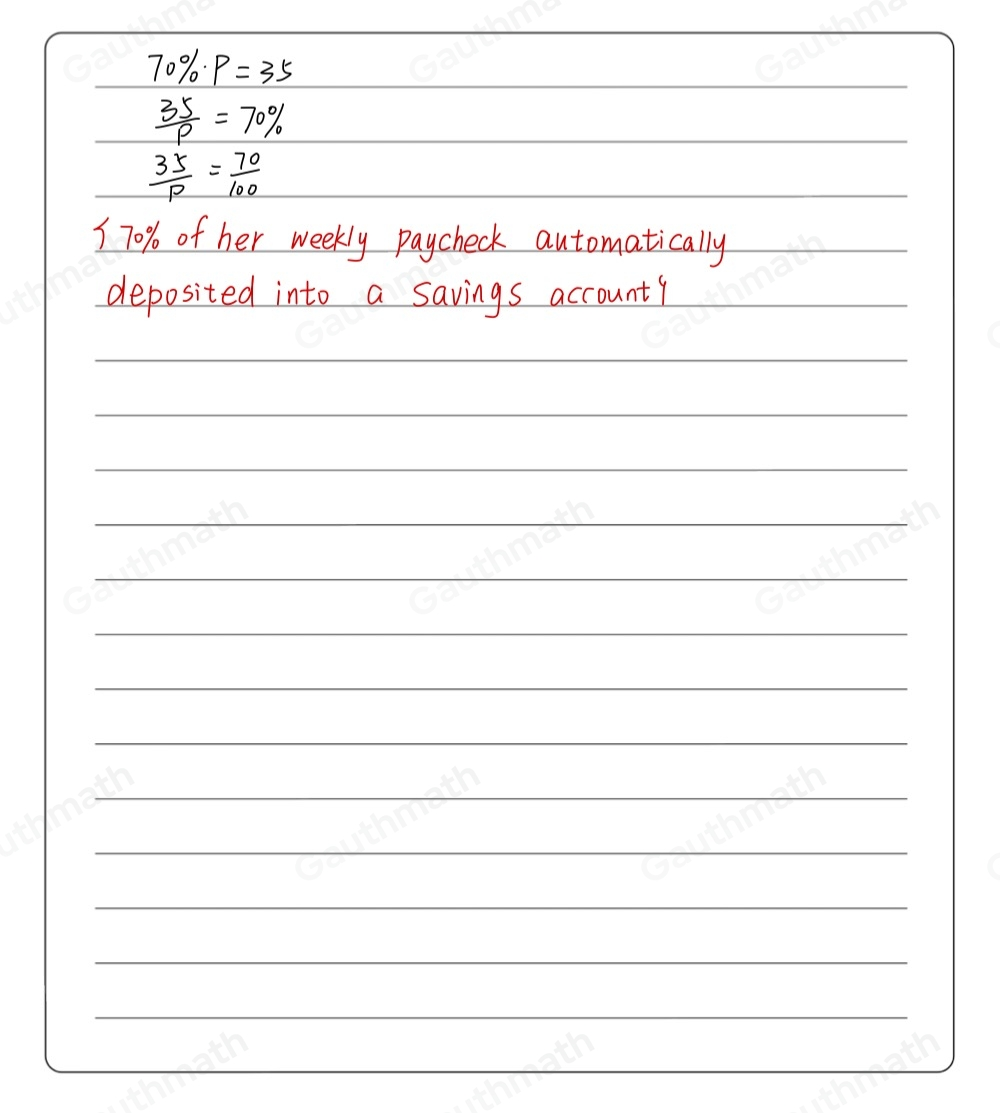 70%·P=35
35/P = 70%
35/P = 70/100
{70% of her weekly paycheck automatically
deposited into a savings account}
Gauthmath